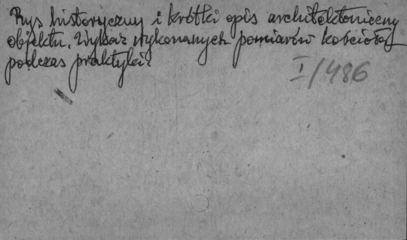 Rys historyczny i krótki opis architektoniczny
objektu. Wykaz wykonanych pomiarów kościoła
podczas praktyki.
I/486